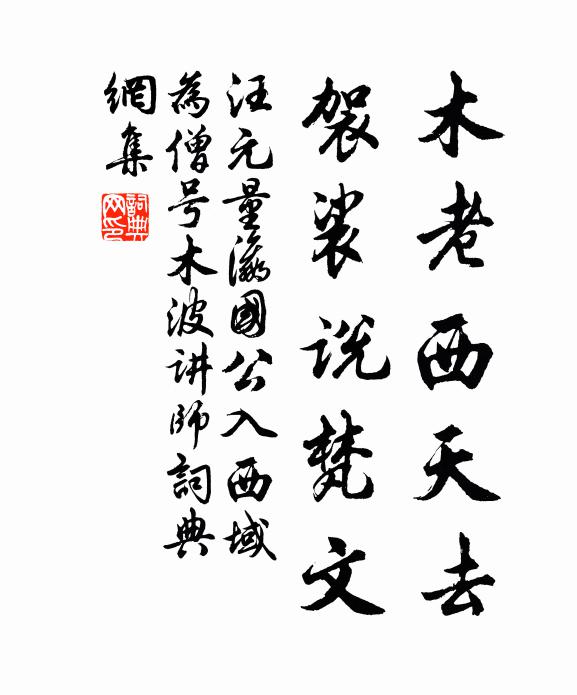 木老西天去
袈裟说梵文
汪元量瀛國公入西域
為僧号木波讲師詞典
網集
詞典
网印